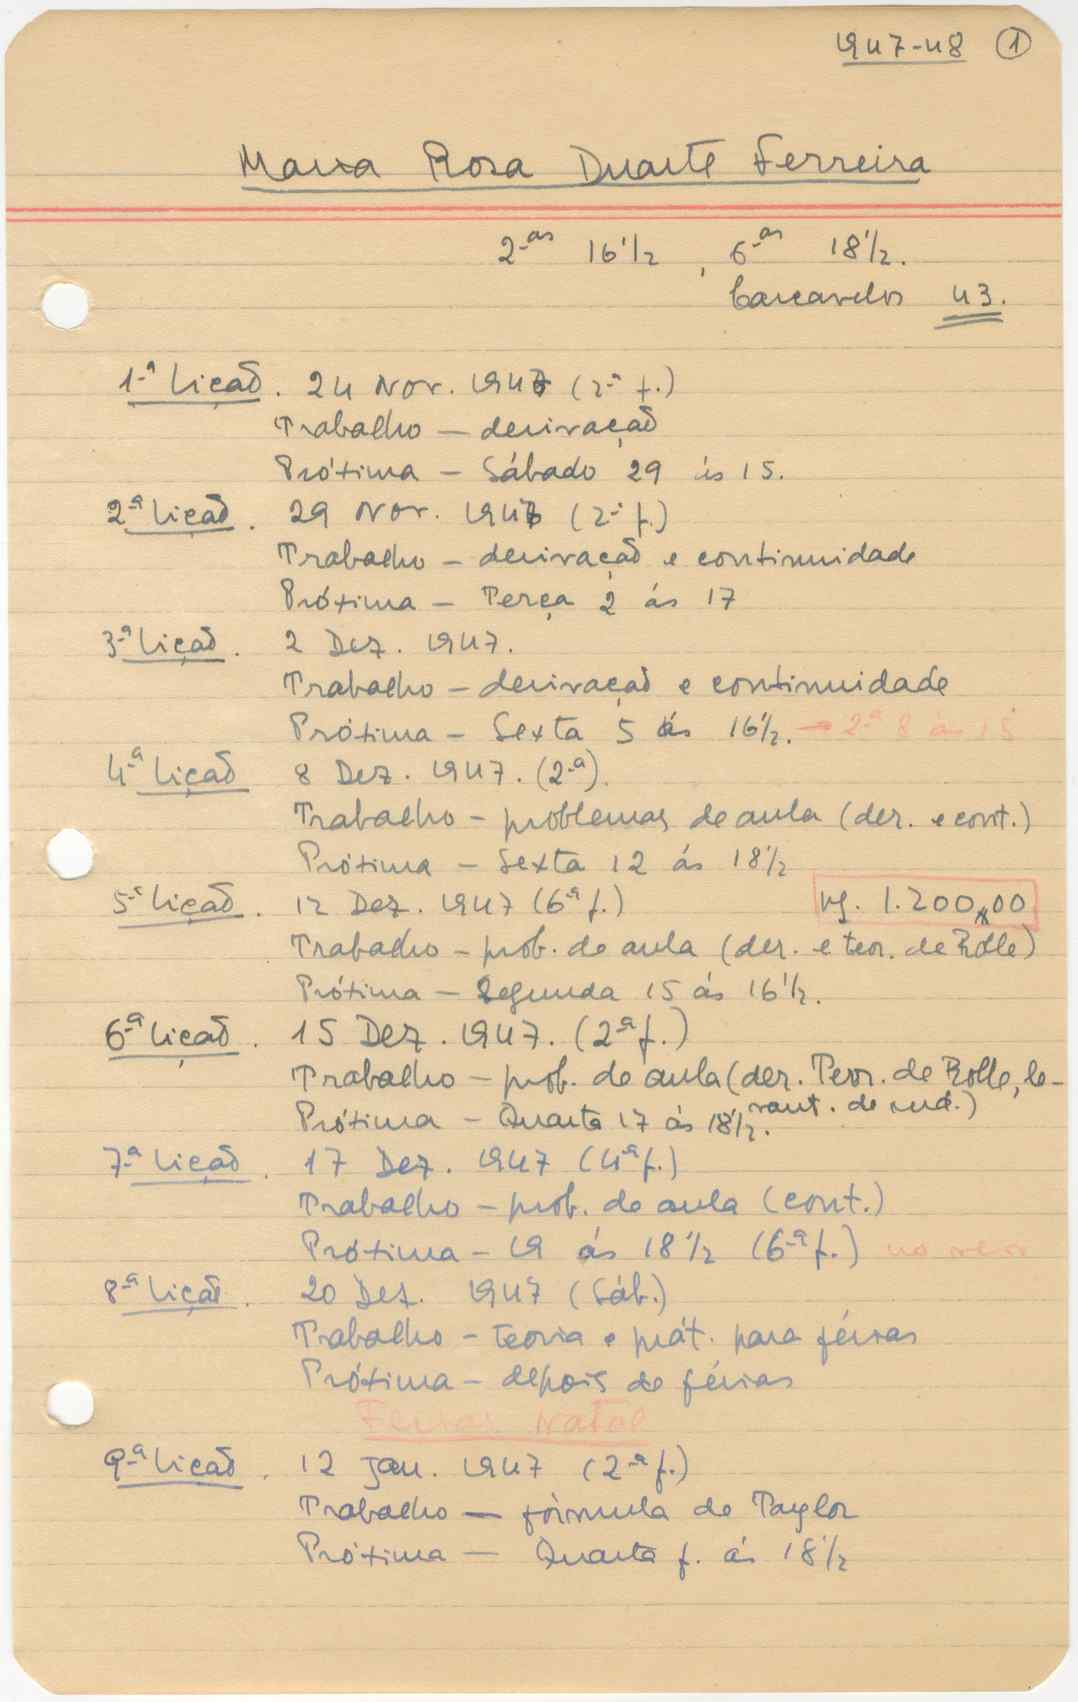 1947-48 ①
Maria Rosa Duarte Ferreira
2-as 16 1/2, 6-as 18 1/2.
Carcavelos 43.
1-ª Lição. 24 Nov. 1947 (2-ª f.)
Trabalho — derivação
Próxima — Sábado 29 às 15.
2-ª Lição. 29 Nov. 1947 (2-ª f.)
Trabalho — derivação e continuidade
Próxima — Terça 2 ás 17
3-ª Lição. 2 Dez. 1947.
Trabalho — derivação e continuidade
Próxima — Sexta 5 ás 16 1/2. → 2-ª 8 às 15
4-ª Lição 8 Dez. 1947. (2-ª).
Trabalho — problemas de aula (der. e cont.)
Próxima — Sexta 12 ás 18 1/2
5-ª Lição. 12 Dez. 1947 (6-ª f.) 1.200$00
Trabalho — prob. de aula (der. e teor. de Rolle)
Próxima — Segunda 15 ás 16 1/2.
6-ª Lição. 15 Dez. 1947. (2-ª f.)
Trabalho — prob. de aula (der. Teor. de Rolle, le-
vant. de ind.)
Próxima — Quarta 17 ás 18 1/2.
7-ª Lição. 17 Dez. 1947 (4-ª f.)
Trabalho — prob. de aula (cont.)
Próxima — 19 ás 18 1/2 (6-ª f.) não veio
8-ª Lição. 20 Dez. 1947 (Sáb.)
Trabalho — teoria e prát. para férias
Próxima — depois de férias
Férias Natal
9-ª Lição. 12 Jan. 1947 (2-ª f.)
Trabalho — fórmula de Taylor
Próxima — Quarta f. ás 18 1/2